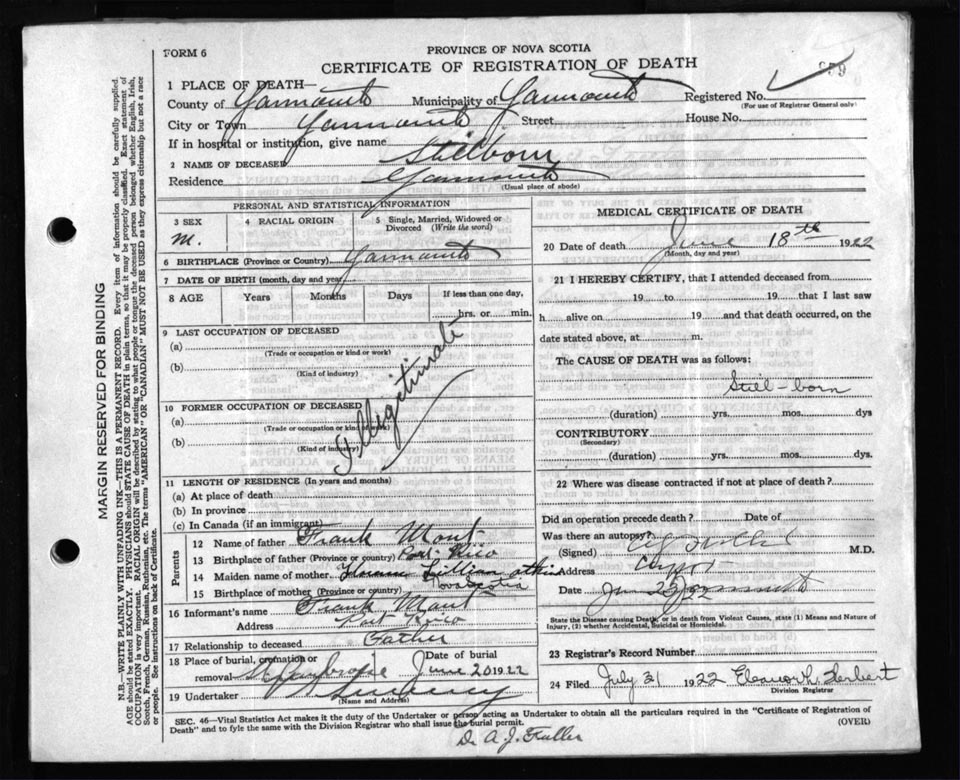 FORM 6
PROVINCE OF NOVA SCOTIA
CERTIFICATE OF REGISTRATION OF DEATH
MARGIN RESERVED FOR BINDING
N.B.—WRITE PLAINLY WITH UNFADING INK—THIS IS A PERMANENT RECORD. Every item of information should be carefully supplied.
AGE should be stated EXACTLY. PHYSICIANS should STATE CAUSE OF DEATH in plain terms, so that it may be properly classified. Exact statement of
OCCUPATION is very important. RACIAL ORIGIN will be described by stating to what people or tongue the deceased person belonged whether English, Irish,
Scotch, French, German, Russian, Ruthenian, etc. The terms "AMERICAN" OR "CANADIAN" MUST NOT BE USED as they express citizenship but not a race
or people. See instructions on back of Certificate.
1 PLACE OF DEATH—
County of Yarmouth Municipality of Yarmouth Registered No.
(For use of Registrar General only)
City or Town Yarmouth Street House No.
If in hospital or institution, give name
2 NAME OF DECEASED Stillborn
Residence Yarmouth
(Usual place of abode)
PERSONAL AND STATISTICAL INFORMATION
3 SEX M. 4 RACIAL ORIGIN 5 Single, Married, Widowed or Divorced (Write the word)
6 BIRTHPLACE (Province or Country) Yarmouth
7 DATE OF BIRTH (month, day and year)
8 AGE Years Months Days If less than one day, hrs. or min.
9 LAST OCCUPATION OF DECEASED
(a)
(Trade or occupation or kind or work)
(b)
(Kind of industry)
Illegitimate
10 FORMER OCCUPATION OF DECEASED
(a)
(Trade or occupation or kind of work)
(b)
(Kind of industry)
11 LENGTH OF RESIDENCE (In years and months)
(a) At place of death
(b) In province
(c) In Canada (if an immigrant)
Parents
12 Name of father Frank Mont
13 Birthplace of father (Province or country) Port Rico
14 Maiden name of mother Lillian
15 Birthplace of mother (Province or country) Nova Scotia
16 Informant's name Frank Mont
Address Port Rico
17 Relationship to deceased Father
18 Place of burial, cremation or removal Date of burial June 20 1922
19 Undertaker Sweeny
(Name and Address)
MEDICAL CERTIFICATE OF DEATH
20 Date of death June 18th 1922
(Month, day and year)
21 I HEREBY CERTIFY, that I attended deceased from
19 to 19 that I last saw
h alive on 19 and that death occurred, on the
date stated above, at m.
The CAUSE OF DEATH was as follows:
Still-born
(duration) yrs. mos. dys
CONTRIBUTORY
(Secondary)
(duration) yrs. mos. dys.
22 Where was disease contracted if not at place of death?
Did an operation precede death? Date of
Was there an autopsy?
(Signed) M.D.
Address
Date Yarmouth
State the Disease causing Death, or in death from Violent Causes, state (1) Means and Nature of
Injury, (2) whether Accidental, Suicidal or Homicidal.
23 Registrar's Record Number
24 Filed July 31 1922 Eleanor L. Herbert
Division Registrar
SEC. 46—Vital Statistics Act makes it the duty of the Undertaker or person acting as Undertaker to obtain all the particulars required in the "Certificate of Registration of
Death" and to fyle the same with the Division Registrar who shall issue the burial permit. (OVER)
Dr A. J. Fuller